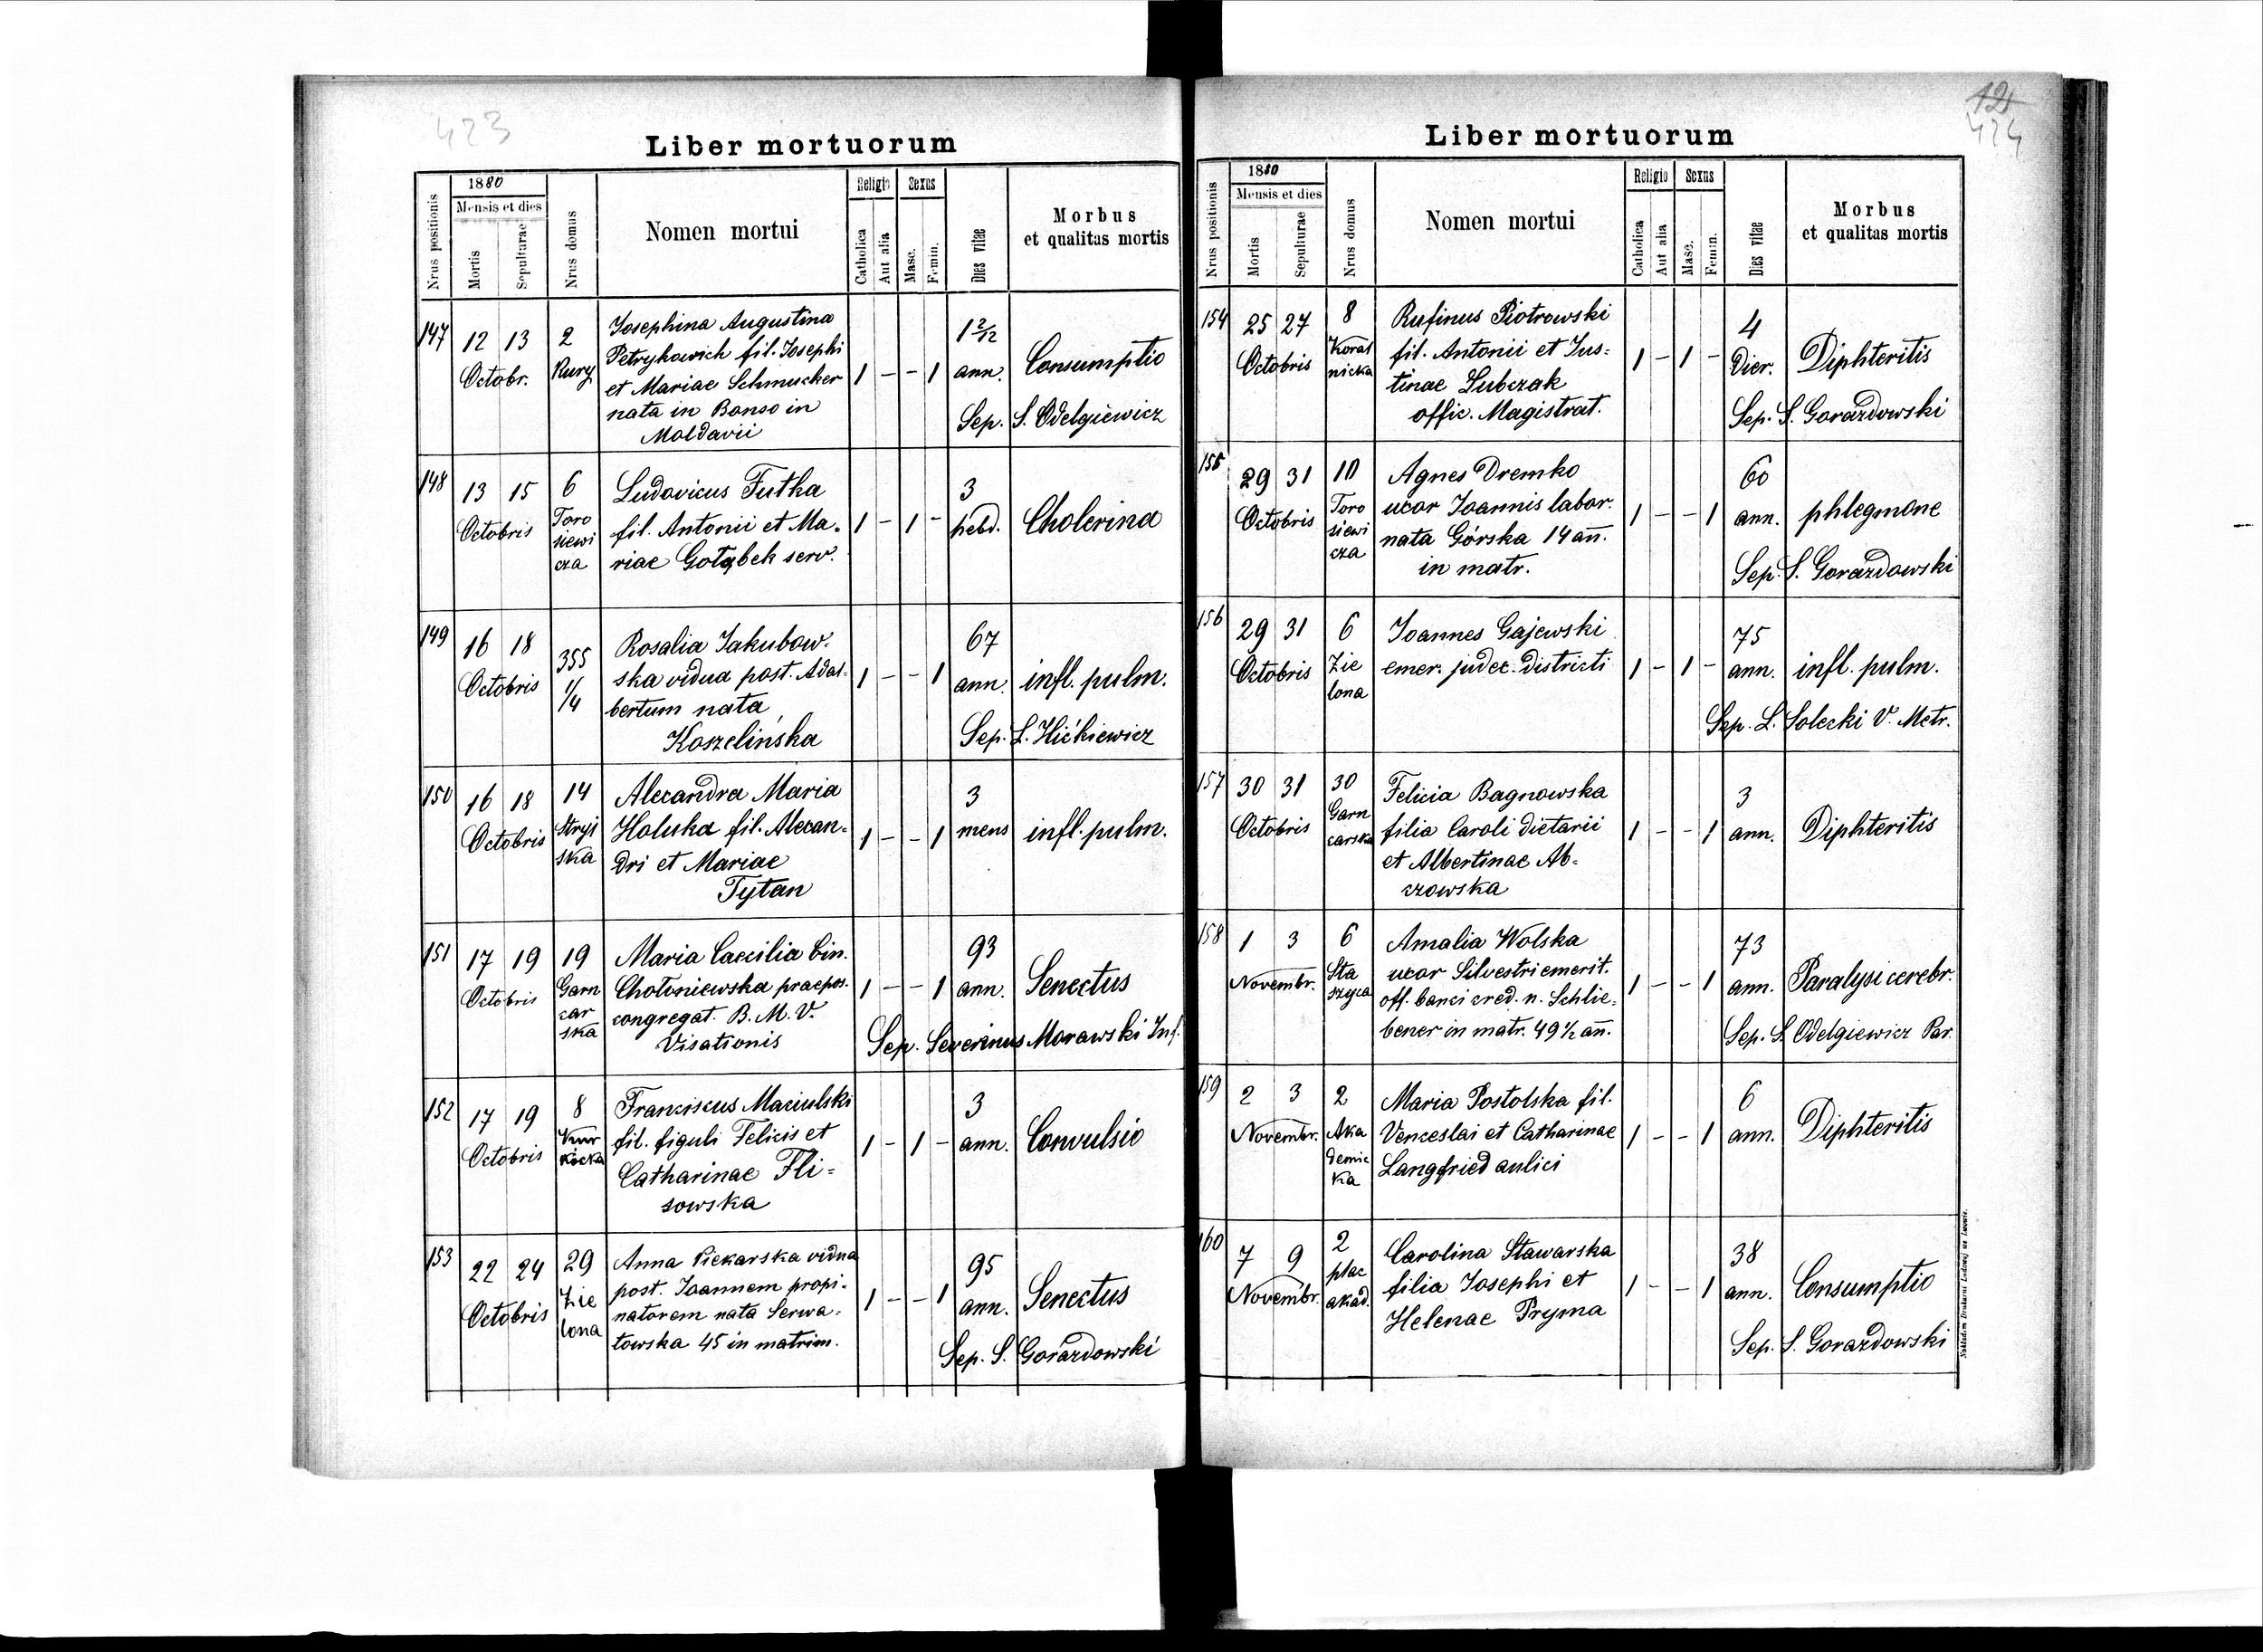 423
Liber mortuorum
Nrus positionis
1880
Mensis et dies
Mortis
Sepulturae
Nrus domus
Nomen mortui
Religio
Catholica
Aut alia
Sexus
Masc.
Femin.
Dies vitae
Morbus
et qualitas mortis
147
12 13
Octobr.
2
Rury
Josephina Augustina
Petrykowich fil. Josephi
et Mariae Schmucker
nata in Bonso in
Moldavii
1 - - 1
1 2/12
ann.
Consumptio
Sep. S. Odelgiewicz
148
13 15
Octobris
6
Toro
siewi
cza
Ludovicus Futka
fil. Antonii et Ma-
riae Gołąbek serv.
1 - 1 -
3
hebd.
Cholerina
149
16 18
Octobris
355
1/4
Rosalia Jakubow-
ska vidua post. Adal-
bertum nata
Koszelińska
1 - - 1
67
ann.
infl. pulm.
Sep. L. Hićkiewicz
150
16 18
Octobris
14
Stryj
ska
Alexandra Maria
Holuka fil. Alexan-
dri et Mariae
Tytan
1 - - 1
3
mens
infl. pulm.
151
17 19
Octobris
19
Garn
car
ska
Maria Caecilia bin.
Chołoniewska praepos.
congregat. B. M. V.
Visationis
1 - - 1
93
ann.
Senectus
Sep. Severinus Morawski Inf.
152
17 19
Octobris
8
Kur
kocka
Franciscus Maciulski
fil. figuli Felicis et
Catharinae Fli-
sowska
1 - 1 -
3
ann.
Convulsio
153
22 24
Octobris
29
Zie
lona
Anna Piekarska vidua
post. Joannem propi-
natorem nata Serwa-
towska 45 in matrim.
1 - - 1
95
ann.
Senectus
Sep. S. Gorazdowski
424
Liber mortuorum
Nrus positionis
1880
Mensis et dies
Mortis
Sepulturae
Nrus domus
Nomen mortui
Religio
Catholica
Aut alia
Sexus
Masc.
Femin.
Dies vitae
Morbus
et qualitas mortis
154
25 27
Octobris
8
Koral
nicka
Rufinus Piotrowski
fil. Antonii et Jus-
tinae Lubczak
offic. Magistrat.
1 - 1 -
4
Dier.
Diphteritis
Sep. S. Gorazdowski
155
29 31
Octobris
10
Toro
siewi
cza
Agnes Dremko
uxor Joannis labor.
nata Górska 14 ann.
in matr.
1 - - 1
60
ann.
phlegmone
Sep. S. Gorazdowski
156
29 31
Octobris
6
Zie
lona
Joannes Gajewski
emer. judex. districti
1 - 1 -
75
ann.
infl. pulm.
Sep. L. Solecki V. Metr.
157
30 31
Octobris
30
Garn
carska
Felicia Bagnowska
filia Caroli dietarii
et Albertinae Ab-
czowska
1 - - 1
3
ann.
Diphteritis
158
1 3
Novembr.
6
Sta
szyca
Amalia Wolska
uxor Silvestri emerit.
off. banci cred. n. Schlie-
bener in matr. 49 1/2 ann.
1 - - 1
73
ann.
Paralysi cerebr.
Sep. S. Odelgiewicz Par.
159
2 3
Novembr.
2
Aka
demic
ka
Maria Postolska fil.
Venceslai et Catharinae
Langfried aulici
1 - - 1
6
ann.
Diphteritis
160
7 9
Novembr.
2
plac
akad.
Carolina Stawarska
filia Josephi et
Helenae Pryma
1 - - 1
38
ann.
Consumptio
Sep. S. Gorazdowski
Nakładem Drukarni Ludowej we Lwowie.